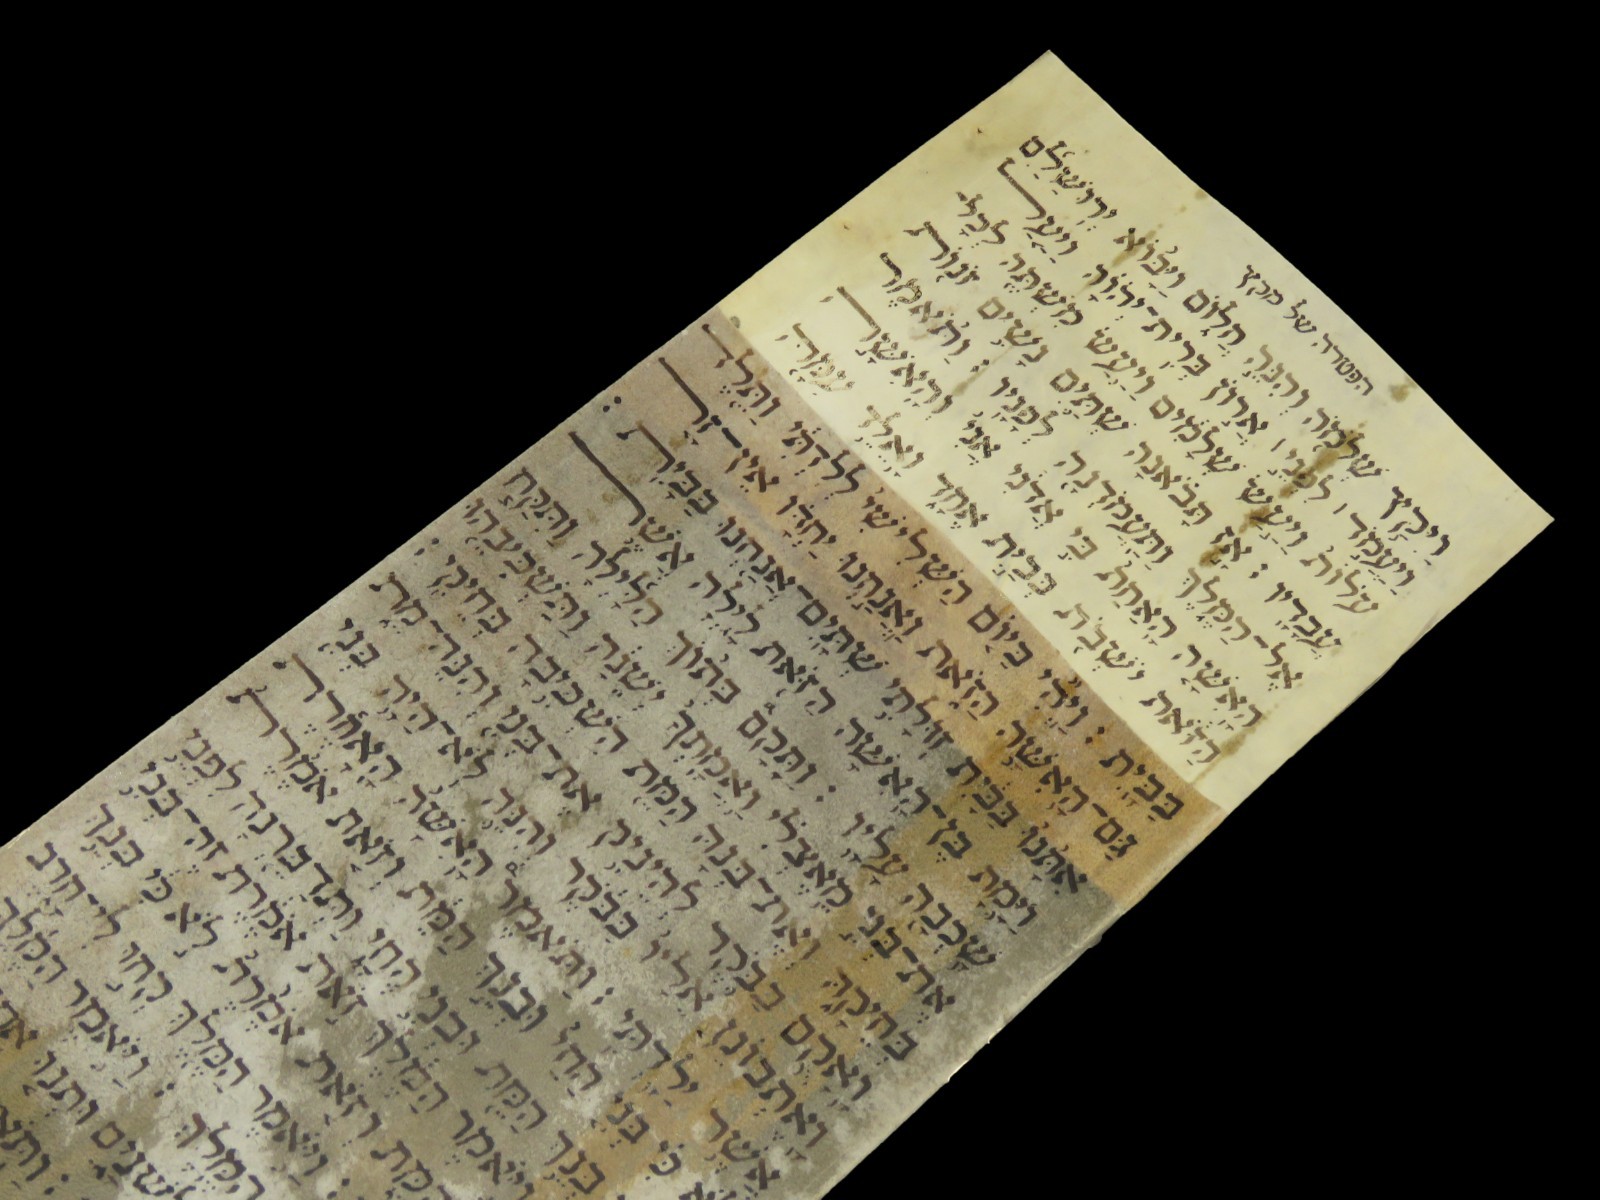 הפטרה של מקץ
וַיִּקַץ שְׁלֹמֹה וְהִנֵּה חֲלוֹם וַיָּבוֹא יְרוּשָׁלַםִ
וַיַּעֲמֹד ׀ לִפְנֵי ׀ אֲרוֹן בְּרִית־יְהוָה וַיַּעַל
עֹלוֹת וַיַּעַשׂ שְׁלָמִים וַיַּעַשׂ מִשְׁתֶּה לְכָל־
עֲבָדָיו : אָז תָּבֹאנָה שְׁתַּיִם נָשִׁים זֹנוֹת
אֶל־הַמֶּלֶךְ וַתַּעֲמֹדְנָה לְפָנָיו : וַתֹּאמֶר
הָאִשָּׁה הָאַחַת בִּי אֲדֹנִי אֲנִי וְהָאִשָּׁה
הַזֹּאת יֹשְׁבֹת בְּבַיִת אֶחָד וָאֵלֵד עִמָּהּ
בַּבָּיִת : וַיְהִי בַּיּוֹם הַשְּׁלִישִׁי לְלִדְתִּי וַתֵּלֶד
גַּם־הָאִשָּׁה הַזֹּאת וַאֲנַחְנוּ יַחְדָּו אֵין־זָר
אִתָּנוּ בַּבַּיִת זוּלָתִי שְׁתַּיִם־אֲנַחְנוּ בַּבָּיִת :
וַיָּמָת בֶּן־הָאִשָּׁה הַזֹּאת לָיְלָה אֲשֶׁר
שָׁכְבָה עָלָיו : וַתָּקָם בְּתוֹךְ הַלַּיְלָה וַתִּקַּח
אֶת־בְּנִי מֵאֶצְלִי וַאֲמָתְךָ יְשֵׁנָה וַתַּשְׁכִּיבֵהוּ
בְּחֵיקָהּ וְאֶת־בְּנָהּ הַמֵּת הִשְׁכִּיבָה בְחֵיקִי :
וָאָקֻם בַּבֹּקֶר לְהֵינִיק אֶת־בְּנִי וְהִנֵּה־מֵת
וָאֶתְבּוֹנֵן אֵלָיו בַּבֹּקֶר וְהִנֵּה לֹא־הָיָה בְנִי
אֲשֶׁר יָלָדְתִּי : וַתֹּאמֶר הָאִשָּׁה הָאַחֶרֶת
כִּי בְּנִי הַחַי וּבְנֵךְ הַמֵּת וְזֹאת אֹמֶרֶת
בְּנֵךְ הַמֵּת וּבְנִי הֶחָי וַתְּדַבֵּרְנָה לִפְנֵי
וַיֹּאמֶר הַמֶּלֶךְ זֹאת אֹמֶרֶת זֶה־בְּנִי
הַמֵּת וְזֹאת אֹמֶרֶת לֹא כִי בְּנֵךְ
: וַיֹּאמֶר הַמֶּלֶךְ קְחוּ לִי־חָרֶב
הַמֶּלֶךְ : וַיֹּאמֶר הַמֶּלֶךְ
לִשְׁנָיִם וּתְנוּ